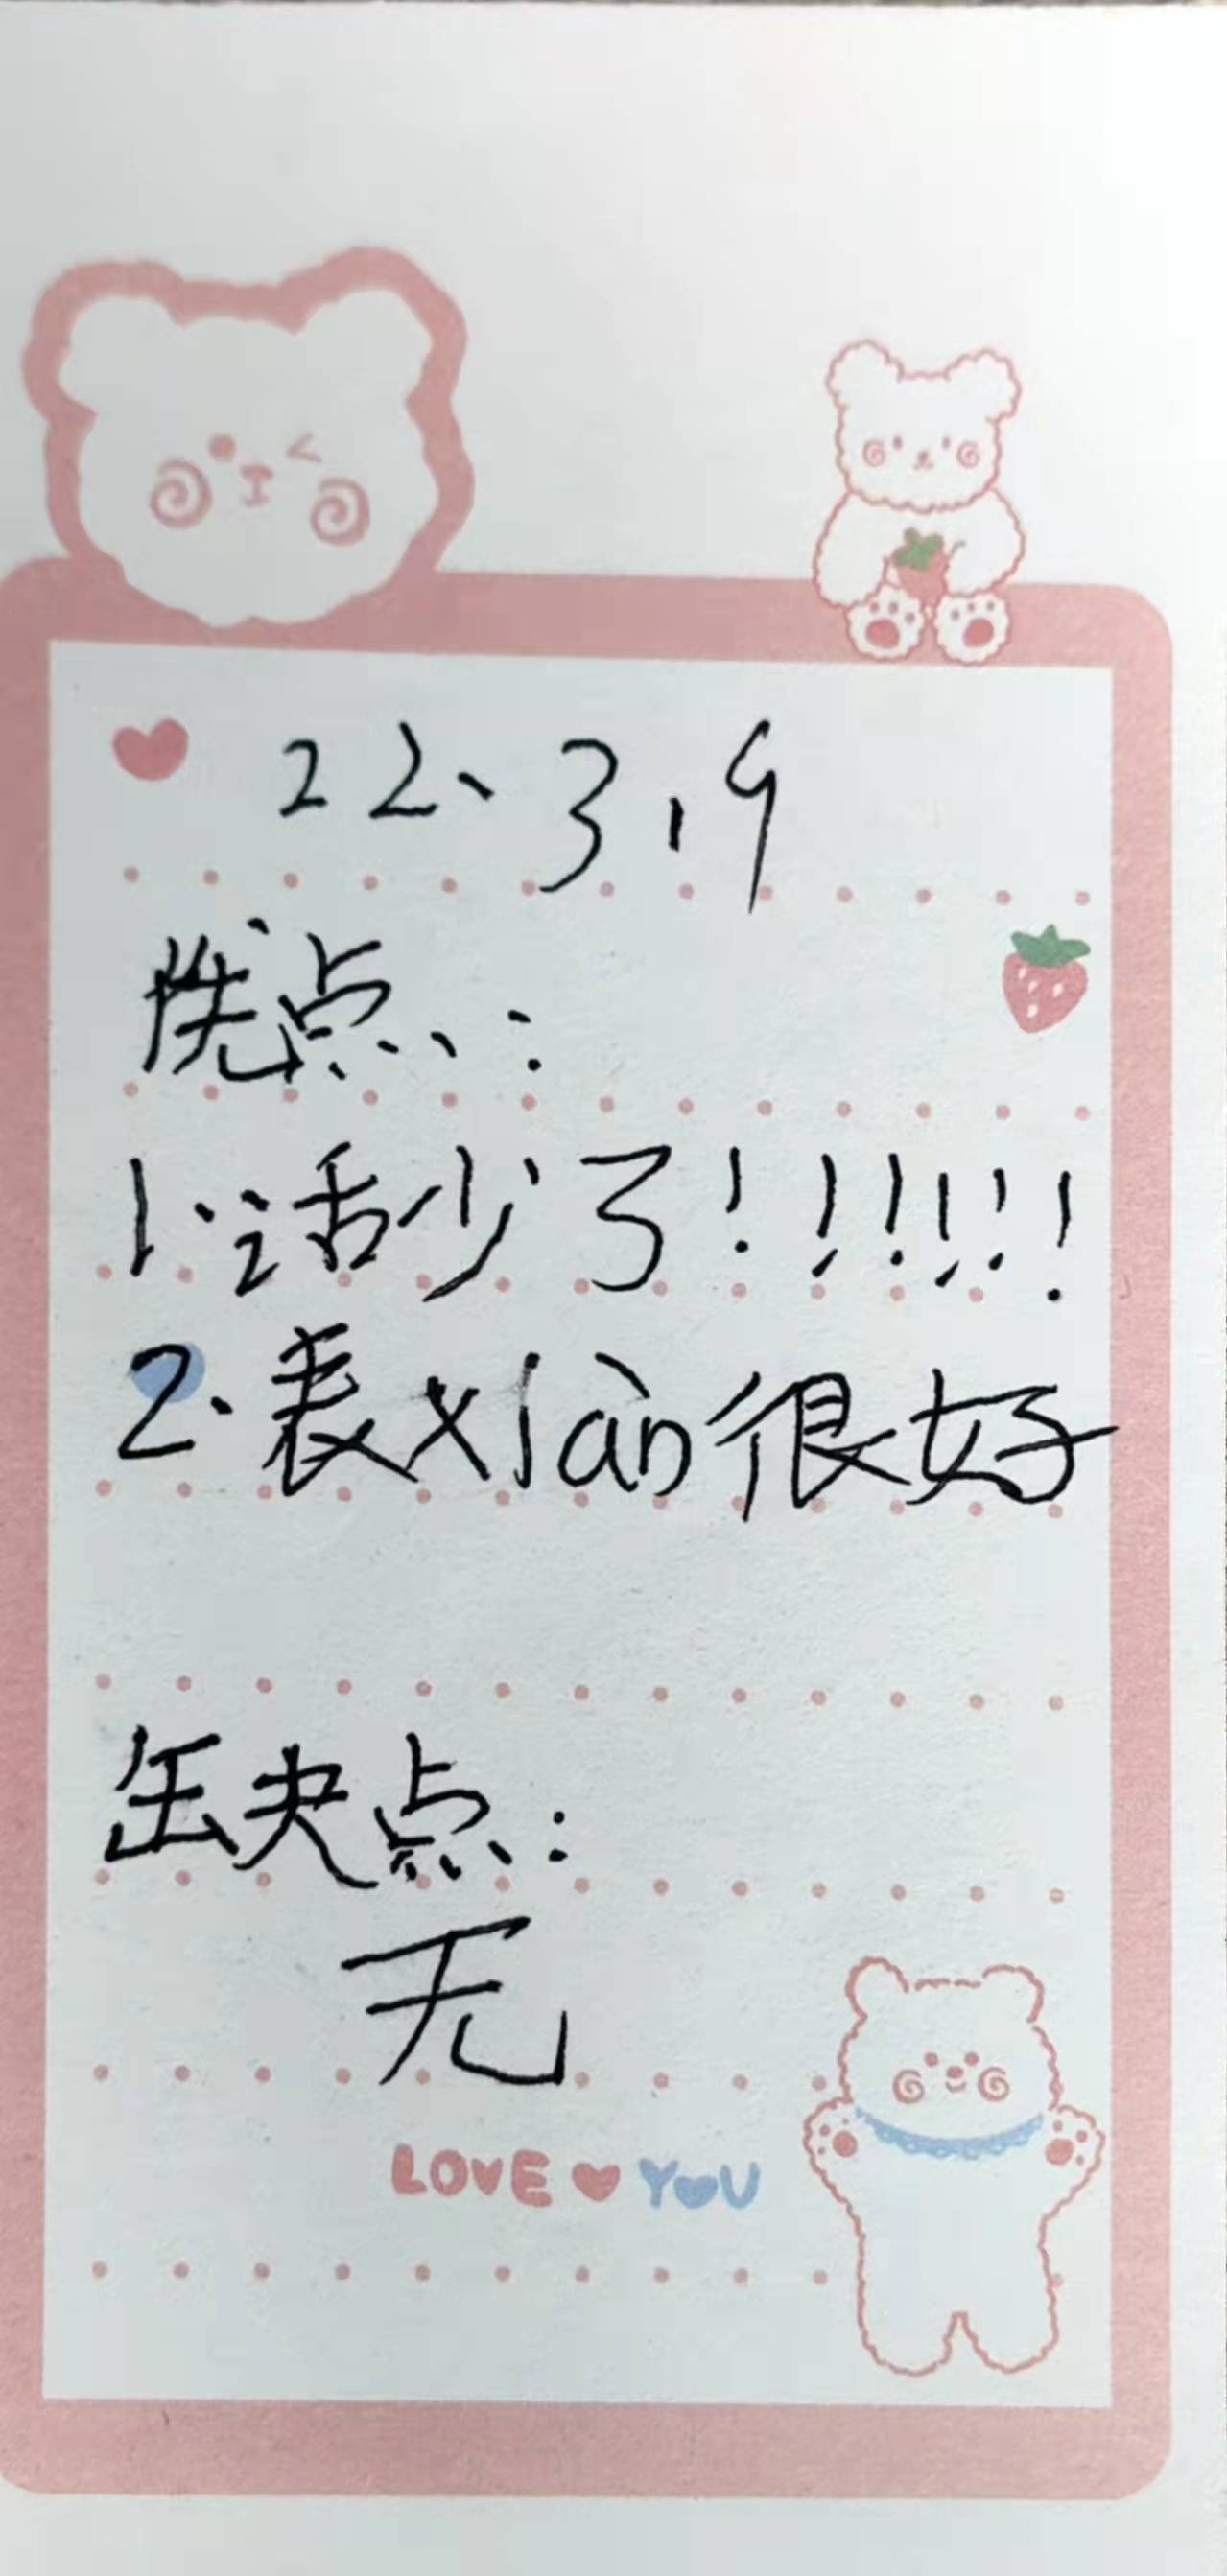 22、3.9
优点：
1.话少了！！！！！！
2.表xiàn很好
缺点：
无
LOVE YOU